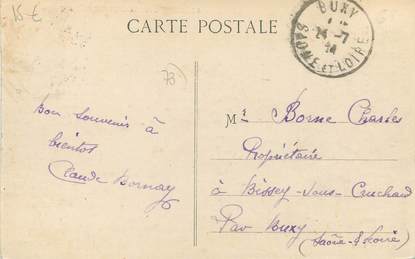 15 €
CARTE POSTALE
BUXY
24 -7
14
SAONE ET LOIRE
73
Bon Souvenir à
bientôt
Claude Bornay
Mr Borne Charles
Propriétaire
à Bissey-sous-Cruchaud
Par Buxy
(Saône-&-Loire)